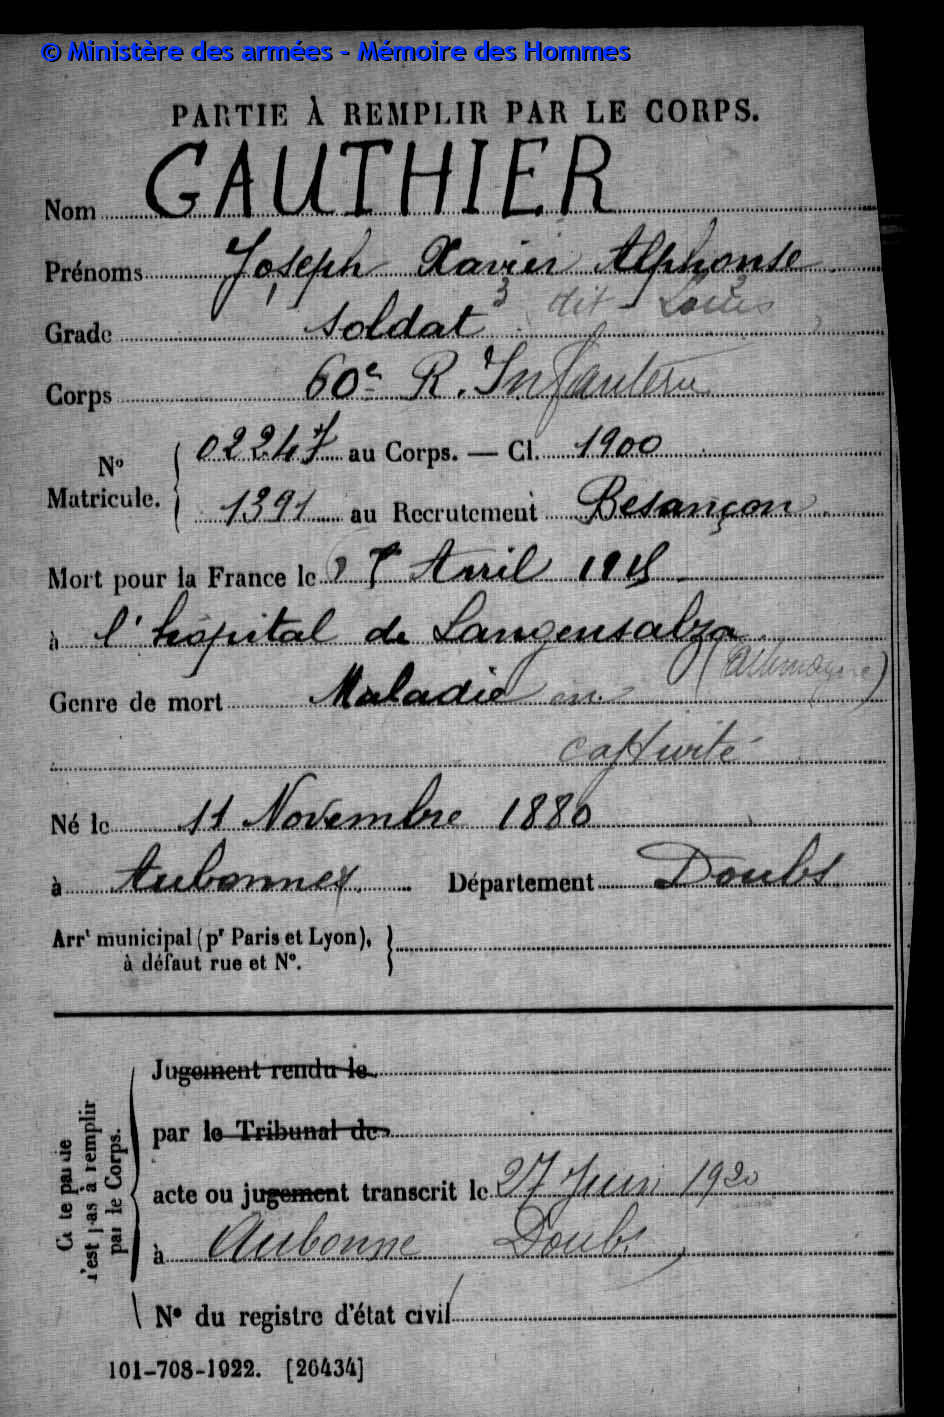 © Ministère des armées - Mémoire des Hommes
PARTIE À REMPLIR PAR LE CORPS.
Nom GAUTHIER
Prénoms Joseph Xavier Alphonse
dit Louis
Grade soldat
Corps 60e R. Infanterie
No Matricule. 02247 au Corps. — Cl. 1900
1391 au Recrutement Besançon
Mort pour la France le 7 Avril 1915
à l'hôpital de Langensalza
(Allemagne)
Genre de mort Maladie en
captivité
Né le 11 Novembre 1880
à Aubonnes Département Doubs
Arrt municipal (pr Paris et Lyon),
à défaut rue et No.
Cette partie
n'est pas à remplir
par le Corps.
Jugement rendu le
par le Tribunal de
acte ou jugement transcrit le 27 Juin 1920
à Aubonne Doubs
No du registre d'état civil
101-708-1922. [26434]